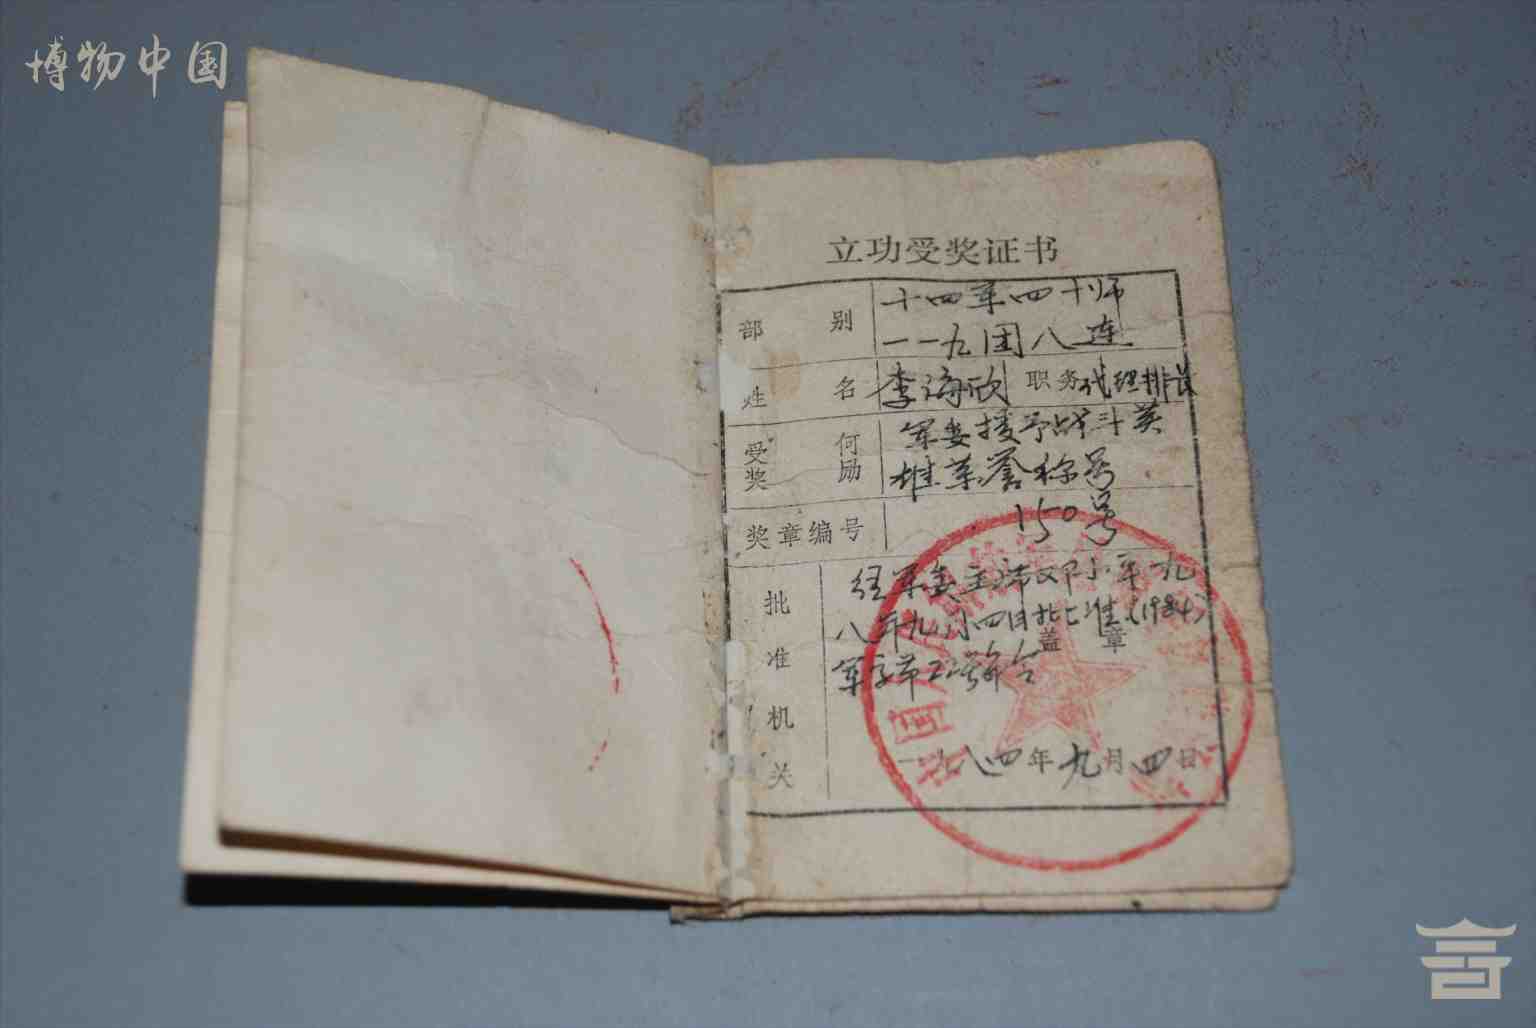 博物中国
立功受奖证书
部别 十四军四十师
一一九团八连
姓名 李海欣 职务 代理排长
受何奖励 军委授予战斗英
雄荣誉称号
奖章编号 150号
批准机关 经军委主席邓小平一九
八年九月四日批准(1984)
盖章
军字第 号命令
一九八四年九月四日